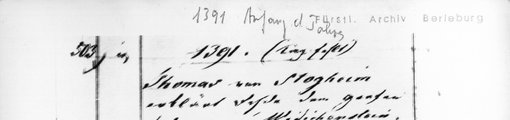 1391 Anfang d Jahrs
Fürstl. Archiv Berleburg
503
1391. (Tag fehlt)
Thomas von Stogheim
erklärt Fehde dem grafen
Widichenstein,